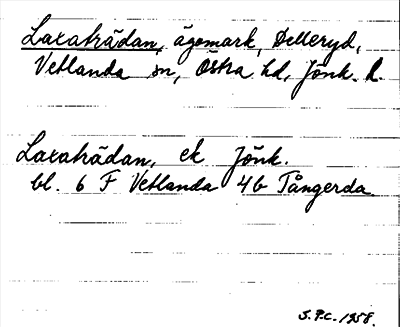 Laxaträdan, ägomark, Delleryd,
Vetlanda sn, Östra hd, Jönk. l.
Laxaträdan, ek Jönk.
bl. 6 F Vetlanda 4b Tångerda
S.P.C. 1958.